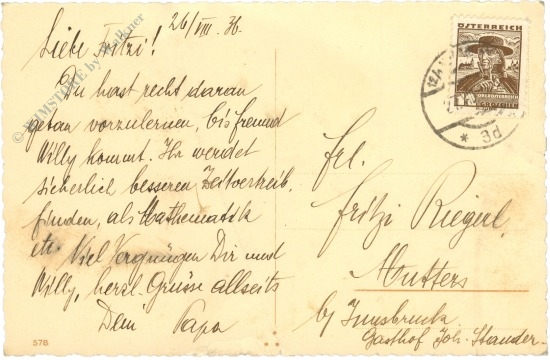 26/VIII. 36.
Liebe Fritzi!
Du hast recht daran
getan vorzulernen, bis freund
Willy kommt. Ihr werdet
sicherlich besseren Zeitvertreib
finden, als Mathematik
etc. Viel Vergnügen Dir und
Willy, herzl. Grüsse allseits
Dein Papa
ÖSTERREICH
OBERÖSTERREICH
GROSCHEN
* 3d
Frl.
Fritzi Riegerl,
Mutters
by Innsbruck
Gasthof Joh. Stauder
578
© FILMSTORE by